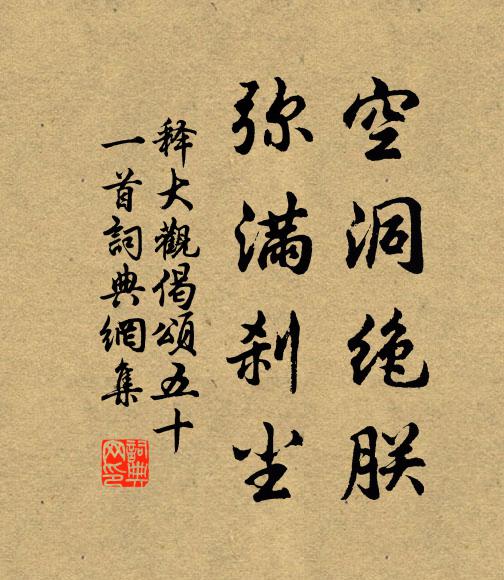 空洞绝朕
弥满刹尘
释大觀偈頌五十
一首詞典網集
詞典
网印